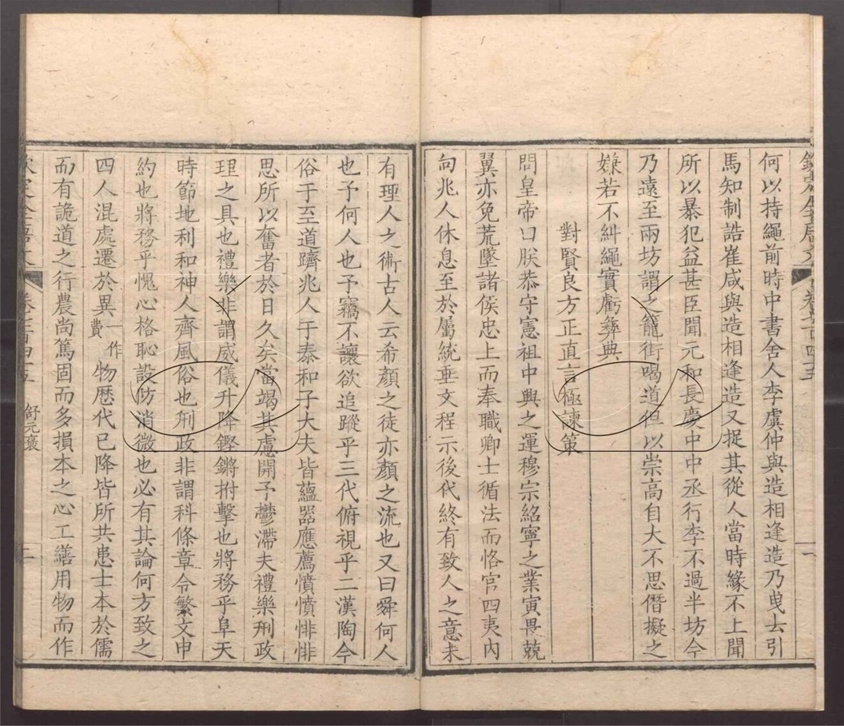 欽定全唐文
卷七百四十五
何以持繩前時中書舍人李虞仲與造相逢造乃曳去引
馬知制誥崔咸與造相逢造又捉其從人當時緣不上聞
所以暴犯益甚臣聞元和長慶中中丞行李不過半坊今
乃遠至兩坊謂之籠街喝道但以崇高自大不思僭擬之
嫌若不糾繩實虧彝典
對賢良方正直言極諫策
問皇帝曰朕恭守憲祖中興之運穆宗紹寧之業寅畏兢
翼亦免荒墜諸侯忠上而奉職卿士循法而恪官四夷內
向兆人休息至於屬統垂文程示後代終有致人之意未
有理人之術古人云希顏之徒亦顏之流也又曰舜何人
也予何人也予竊不讓欲追蹤乎三代俯視乎二漢陶今
俗于至道躋兆人于泰和子大夫皆蘊器應薦憤憤悱悱
思所以奮者於日久矣當竭其慮開予鬱滯夫禮樂刑政
理之具也禮樂非謂威儀升降鏗鏘拊擊也將務乎阜天
時節地利和神人齊風俗也刑政非謂科條章令繁文申
約也將務乎愧心格恥設防消微也必有其論何方致之
四人混處遷於異費一作物歷代已降皆所共患士本於儒
而有詭道之行農尚篤固而多損本之心工譱用物而作
欽定全唐文
卷七百四十五
舒元褒
二